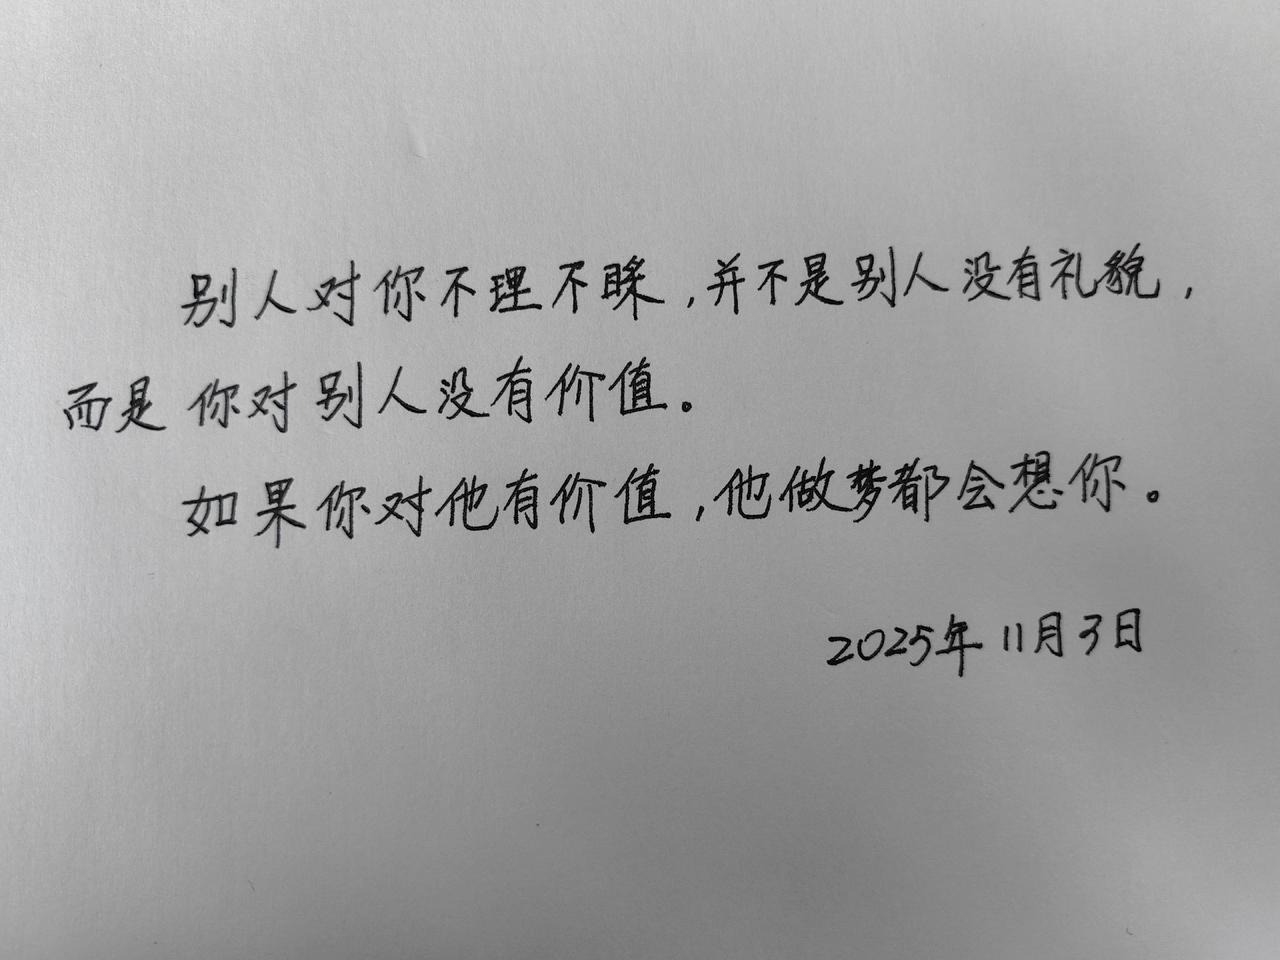 别人对你不理不睬,并不是别人没有礼貌,
而是你对别人没有价值。
如果你对他有价值,他做梦都会想你。
2025年11月3日